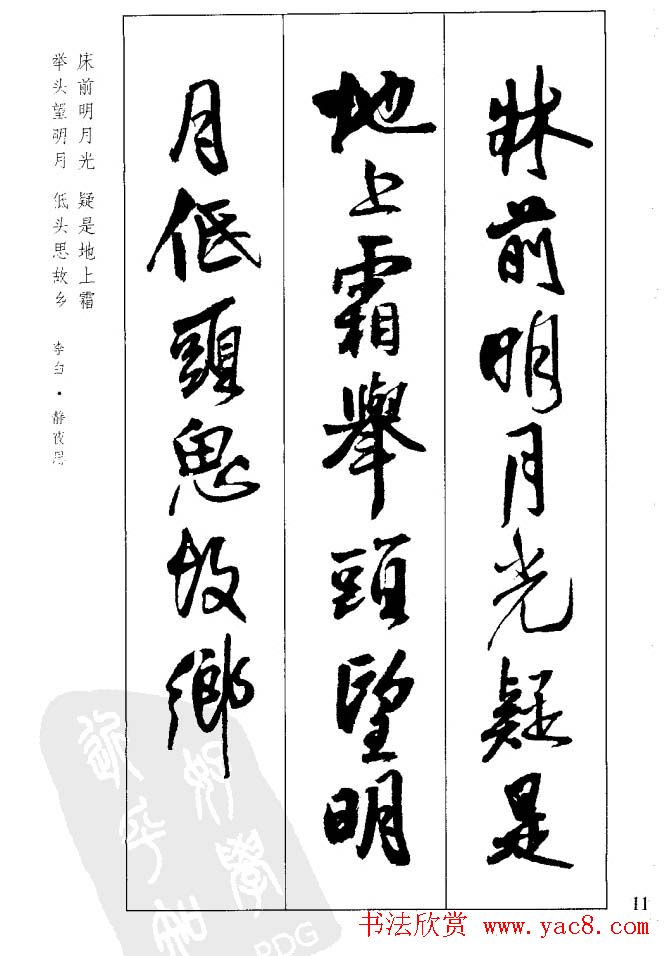 牀前明月光疑是
地上霜舉頭望明
月低頭思故鄉
床前明月光 疑是地上霜
举头望明月 低头思故乡 李白·静夜思
11
书法欣赏 www.yac8.com
PDG